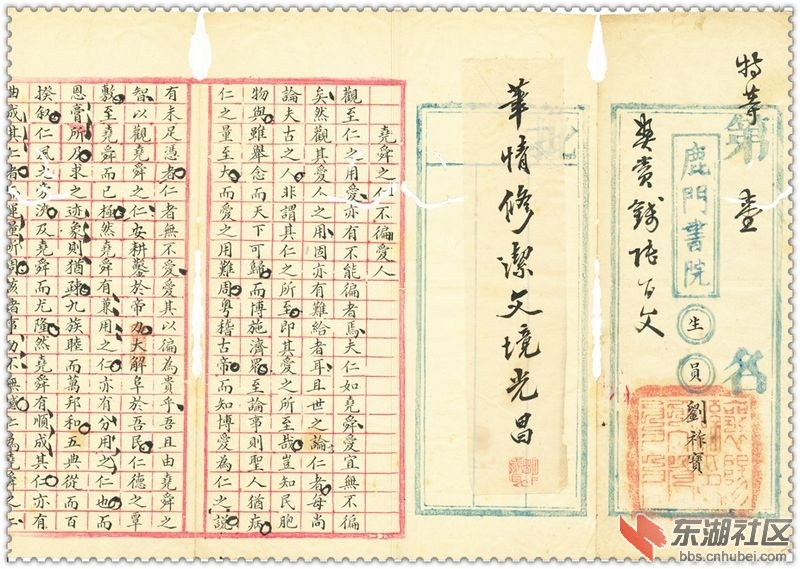 特等第壹名
奬賞錢陸百文
鹿門書院
生
員
劉祚寶
華情修潔文境光昌
堯舜之仁不徧愛人
觀至仁之用愛亦有不能徧者焉夫仁如堯舜愛宜無不徧
矣然觀其愛人之用固亦有難給者耳且世之論仁者每尚
論夫古之人非謂其仁之所至即其愛之所至哉豈知民胞
物與雖舉念而天下可歸而博施濟眾至論事則聖人猶病
仁之量至大而愛之用難周粵稽古帝而知博愛為仁之說
有未足憑者仁者無不愛愛其以徧為貴乎吾且由堯舜之
智以觀堯舜之仁安耕鑿於帝力大解阜於吾民仁德之覃
敷至堯舜而已極然堯舜有兼用之仁亦有分用之仁也而
恩膏所及求之迹象則猶疎九族睦而萬邦和五典從而百
揆敘仁風之旁流及堯舜而尤隆然堯舜有順成其仁亦有
曲成其仁者
东湖社区
bbs.cnhubei.com